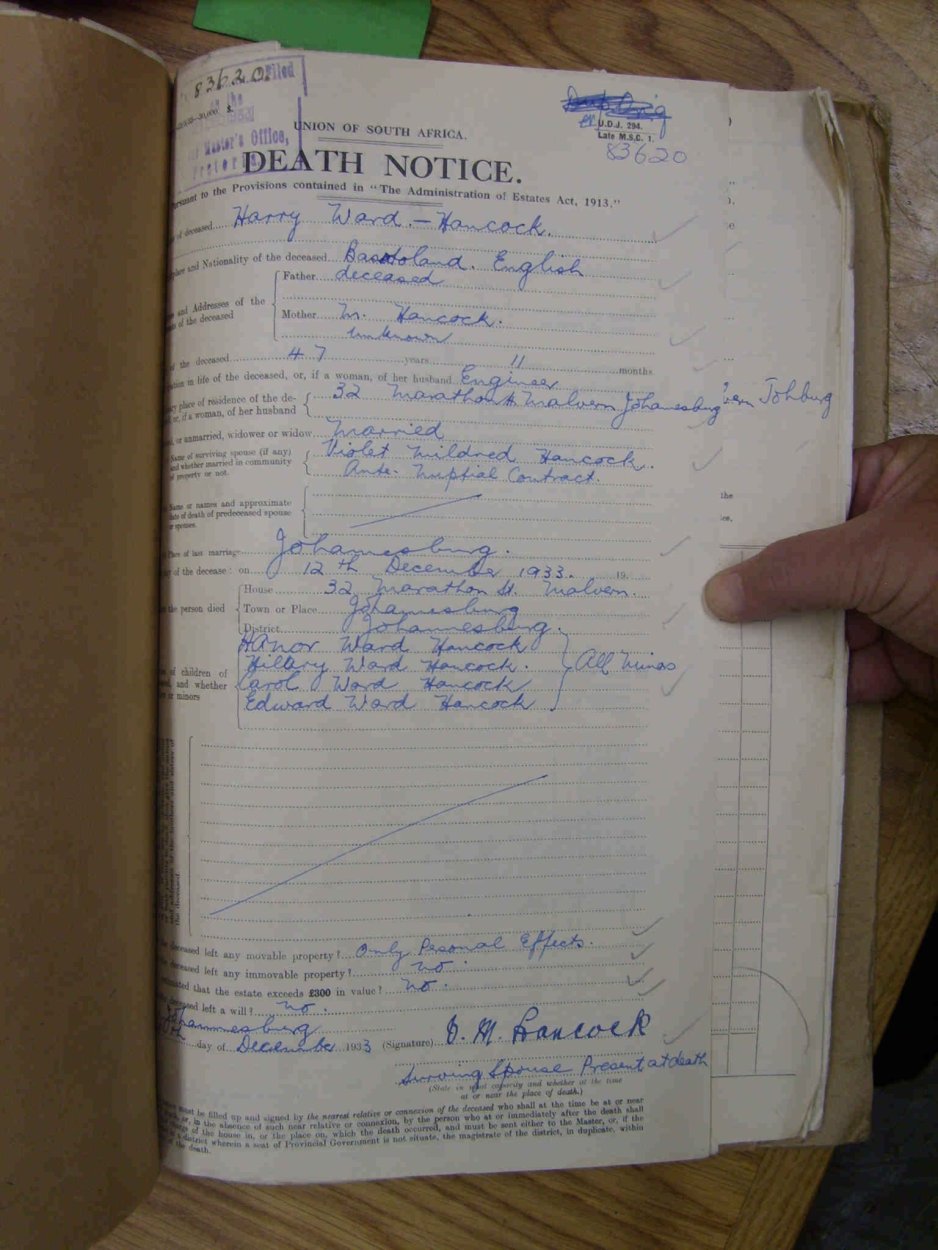 83620. Filed
in the
Master's Office,
Pretoria
U.D.J. 294.
Late M.S.C. 1.
83620
UNION OF SOUTH AFRICA.
DEATH NOTICE.
Pursuant to the Provisions contained in "The Administration of Estates Act, 1913."
of deceased Harry Ward - Hancock.
place and Nationality of the deceased Basutoland. English
Father deceased
and Addresses of the
of the deceased
Mother M. Hancock.
unknown
of the deceased 47 years 11 months
ation in life of the deceased, or, if a woman, of her husband Engineer
ary place of residence of the de- 32 Marathon St Malvern Johannesburg
or, if a woman, of her husband
vern Johburg
ed, or unmarried, widower or widow Married
Name of surviving spouse (if any) Violet Mildred Hancock.
and whether married in community
of property or not. Ante- Nuptial Contract.
Name or names and approximate
date of death of predeceased spouse
or spouses.
the
ice.
Place of last marriage Johannesburg.
of the decease: on 12th December 1933. 19
House 32 Marathon St. Malvern.
the person died Town or Place Johannesburg
District Johannesburg.
Ward Hancock
Hillary Ward Hancock.
of children of Carol Ward Hancock
and whether
or minors Edward Ward Hancock
All
the deceased.
deceased left any movable property? Only Personal Effects.
deceased left any immovable property? no.
estimated that the estate exceeds £300 in value? no.
deceased left a will? no.
Johannesburg
day of December 1933 (Signature) V. M. Hancock
Surviving Spouse Present at death
(State in what capacity and whether at the time
at or near the place of death.)
must be filled up and signed by the nearest relative or connexion of the deceased who shall at the time be at or near
or, in the absence of such near relative or connexion, by the person who at or immediately after the death shall
charge of the house in, or the place on, which the death occurred, and must be sent either to the Master, or, if the
district wherein a seat of Provincial Government is not situate, the magistrate of the district, in duplicate, within
the death.